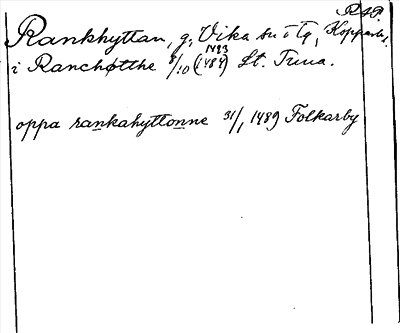 RAP.
Rankhyttan, g., Vika sn o Tg, Kopparb.
1483
i Ranchøtthe 8/10 (1484) St. Tuna.
oppa rankahyttonne 31/1 1489 Folkarby